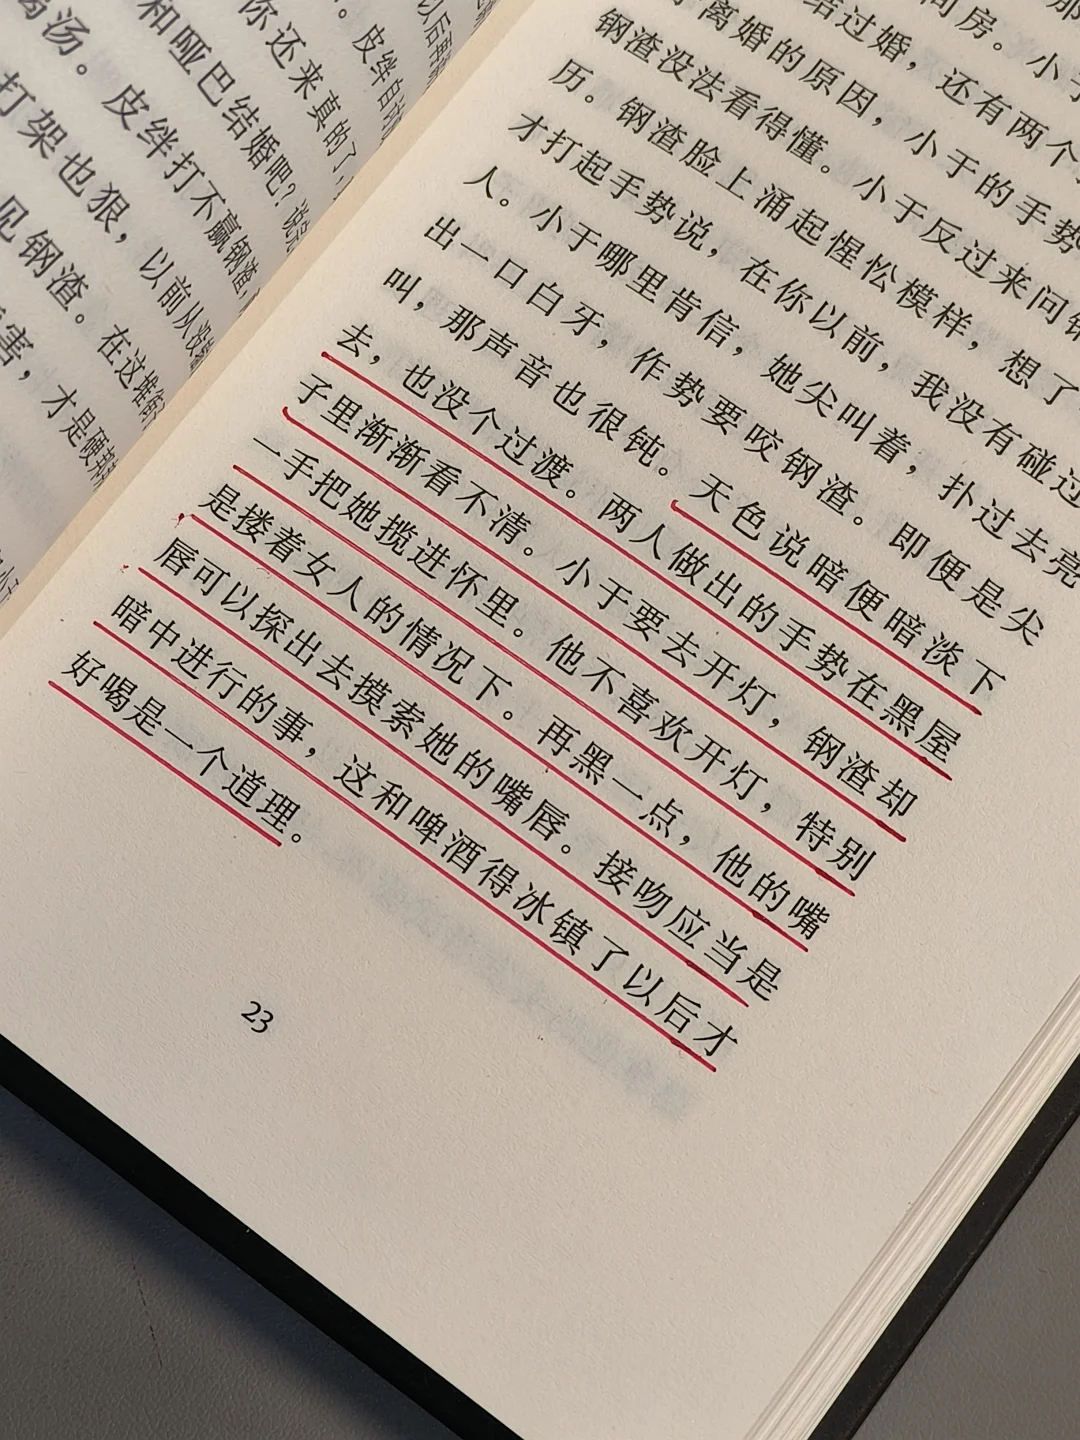 喝汤。
和哑巴结婚吧？
你还来真的了
打架也狠，以前从没
皮绊打不赢钢渣，
见钢渣。在这堆
害，才是硬
结过婚，还有两个
离婚的原因，小于的手势
钢渣没法看得懂。小于反过来问钢
历。钢渣脸上涌起惺忪模样，想了
才打起手势说，在你以前，我没有碰过
人。小于哪里肯信，她尖叫着，扑过去亮
出一口白牙，作势要咬钢渣。即便是尖
叫，那声音也很钝。天色说暗便暗淡下
去，也没个过渡。两人做出的手势在黑屋
子里渐渐看不清。小于要去开灯，钢渣却
一手把她揽进怀里。他不喜欢开灯，特别
是搂着女人的情况下。再黑一点，他的嘴
唇可以探出去摸索她的嘴唇。接吻应当是
暗中进行的事，这和啤酒得冰镇了以后才
好喝是一个道理。
23